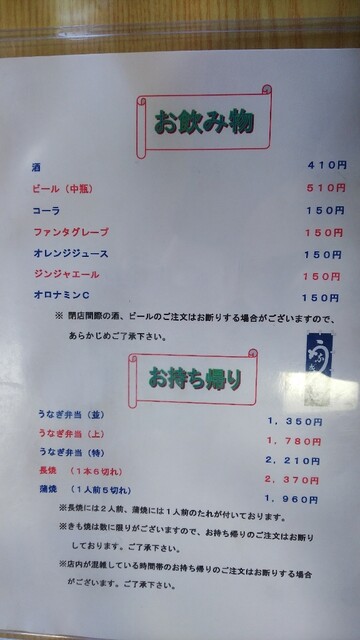 お飲み物
酒 410円
ビール（中瓶） 510円
コーラ 150円
ファンタグレープ 150円
オレンジジュース 150円
ジンジャエール 150円
オロナミンC 150円
※ 閉店間際の酒、ビールのご注文はお断りする場合がございますので、
あらかじめご了承下さい。
お持ち帰り
うなぎ弁当（並） 1，350円
うなぎ弁当（上） 1，780円
うなぎ弁当（特） 2，210円
長焼 （1本6切れ） 2，370円
蒲焼 （1人前5切れ） 1，960円
※長焼には2人前、蒲焼には1人前のたれが付いております。
※きも焼は数に限りがございますので、お持ち帰りのご注文はお断り
しております。ご了承下さい。
※店内が混雑している時間帯のお持ち帰りのご注文はお断りする場合
がございます。ご了承下さい。